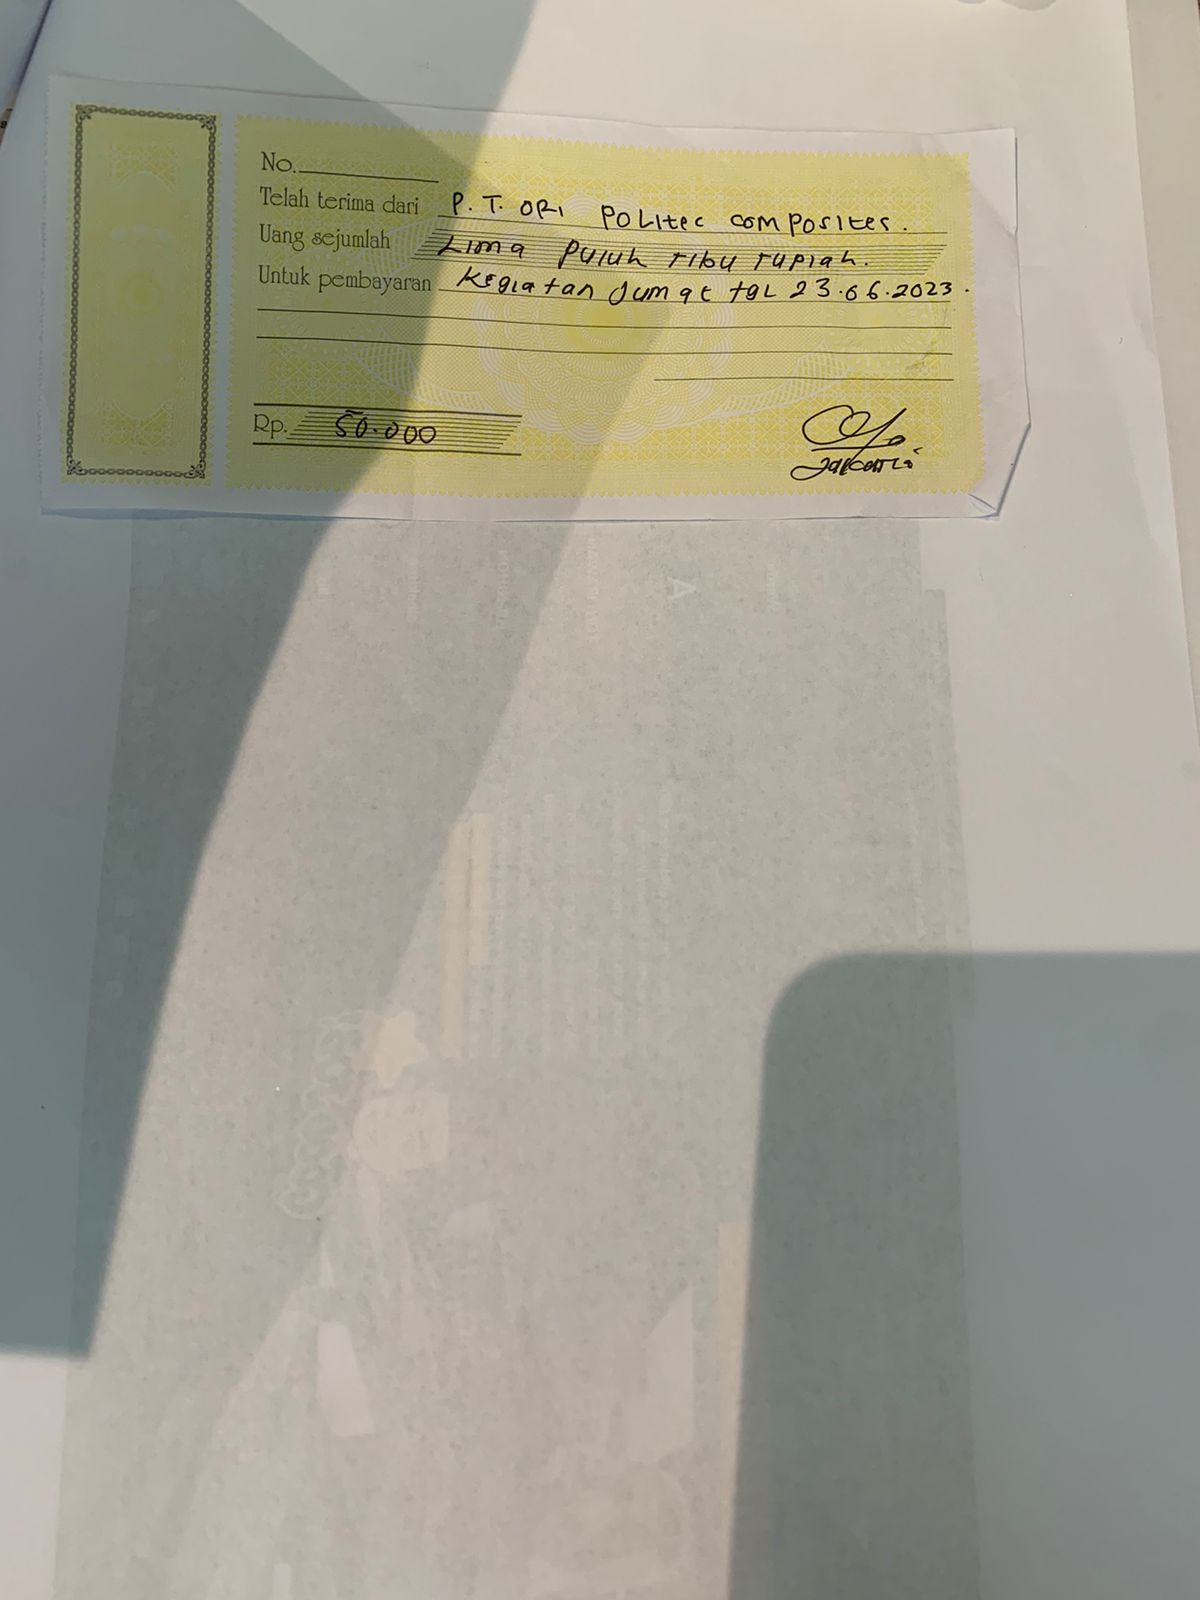 No.
Telah terima dari P. T. ORI POLITEC COMPOSITES.
Uang sejumlah Lima Puluh ribu rupiah.
Untuk pembayaran Kegiatan Jumat tgl 23.06.2023.
Rp. 50.000